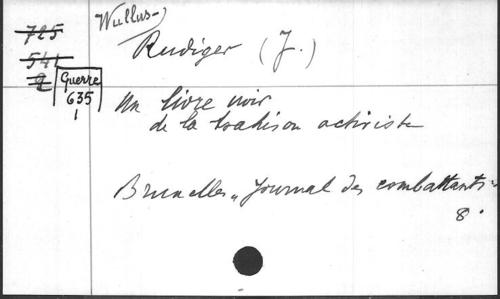 725
541
2
Guerre
635
1
Wullus-
Rudiger (J.)
Un livre noir
de la trahison activiste
Bruxelles, "Journal des combattants"
8°